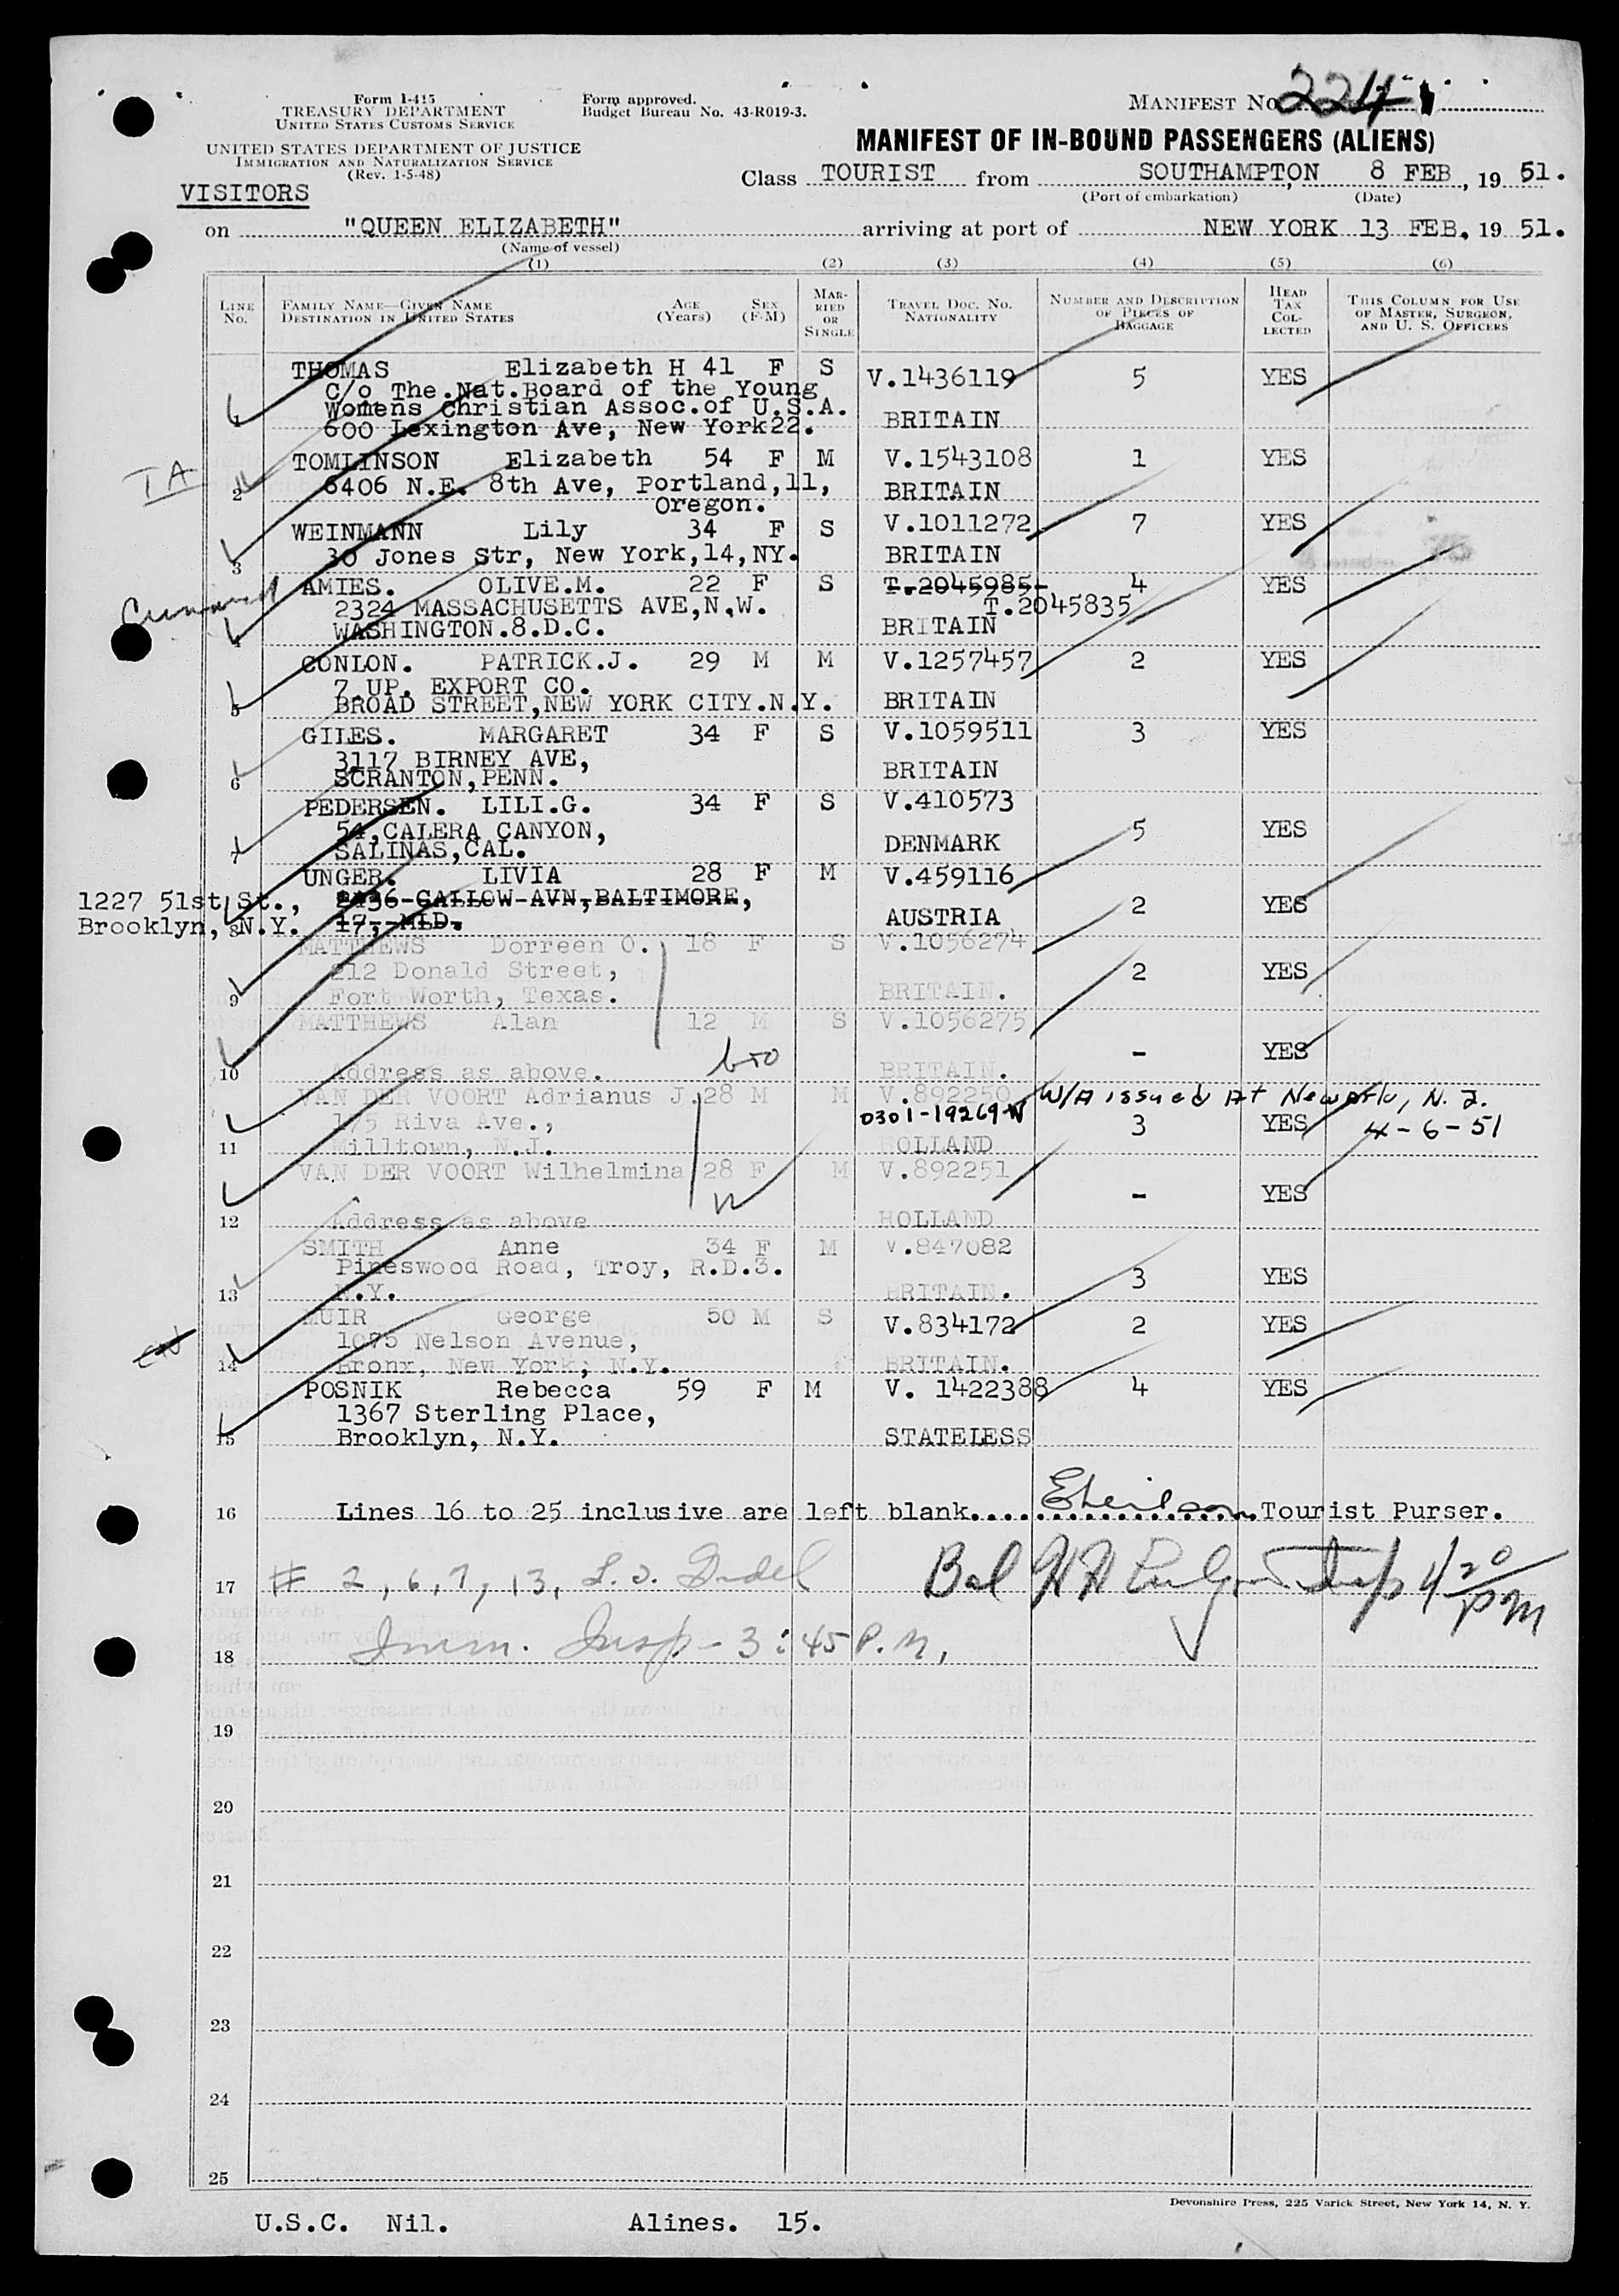 Form I-415
TREASURY DEPARTMENT
UNITED STATES CUSTOMS SERVICE
UNITED STATES DEPARTMENT OF JUSTICE
IMMIGRATION AND NATURALIZATION SERVICE
(Rev. 1-5-48)
Form approved.
Budget Bureau No. 43-R019-3.
MANIFEST No.
MANIFEST OF IN-BOUND PASSENGERS (ALIENS)
VISITORS
Class TOURIST from SOUTHAMPTON, 8 FEB, 19 51.
(Port of embarkation) (Date)
on "QUEEN ELIZABETH" arriving at port of NEW YORK 13 FEB. 19 51.
(Name of vessel)
(1) (2) (3) (4) (5) (6)
LINE No. FAMILY NAME—GIVEN NAME DESTINATION IN UNITED STATES AGE (Years) SEX (F-M) MARRIED OR SINGLE TRAVEL DOC. NO. NATIONALITY NUMBER AND DESCRIPTION OF PIECES OF BAGGAGE HEAD TAX COLLECTED THIS COLUMN FOR USE OF MASTER, SURGEON, AND U. S. OFFICERS
THOMAS Elizabeth H 41 F S V.1436119 5 YES
C/o The.Nat.Board of the Young
Womens Christian Assoc.of U.S.A.
1 600 Lexington Ave, New York22. BRITAIN
TOMLINSON Elizabeth 54 F M V.1543108 1 YES
IA 2 6406 N.E. 8th Ave, Portland,11, BRITAIN
Oregon.
WEINMANN Lily 34 F S V.1011272 7 YES
3 30 Jones Str, New York,14,NY. BRITAIN
Cunard AMIES. OLIVE.M. 22 F S T.2045985 4 YES
2324 MASSACHUSETTS AVE,N.W. T.2045835
4 WASHINGTON.8.D.C. BRITAIN
CONLON. PATRICK.J. 29 M M V.1257457 2 YES
7.UP. EXPORT CO.
5 BROAD STREET,NEW YORK CITY.N.Y. BRITAIN
GILES. MARGARET 34 F S V.1059511 3 YES
3117 BIRNEY AVE,
6 SCRANTON,PENN. BRITAIN
PEDERSEN. LILI.G. 34 F S V.410573
54,CALERA CANYON, 5 YES
7 SALINAS,CAL. DENMARK
UNGER. LIVIA 28 F M V.459116
1227 51st St., 2436 CALLOW AVN,BALTIMORE, 2 YES
Brooklyn, N.Y. 8 17, MLD. AUSTRIA
MATTHEWS Dorreen O. 18 F S V.1056274
212 Donald Street, 2 YES
9 Fort Worth, Texas. BRITAIN.
MATTHEWS Alan 12 M S V.1056275
- YES
10 Address as above. BRITAIN.
VAN DER VOORT Adrianus J. 28 M M V.892250 W/A issued At Newark, N. J.
175 Riva Ave., 0301-19269 3 YES 4-6-51
11 Milltown, N.J. HOLLAND
VAN DER VOORT Wilhelmina 28 F M V.892251
- YES
12 Address as above HOLLAND
SMITH Anne 34 F M V.847082
Pineswood Road, Troy, R.D.3. 3 YES
13 N.Y. BRITAIN.
MUIR George 50 M S V.834172 2 YES
1075 Nelson Avenue,
14 Bronx, New York; N.Y. BRITAIN.
POSNIK Rebecca 59 F M V. 1422388 4 YES
1367 Sterling Place,
15 Brooklyn, N.Y. STATELESS
16 Lines 16 to 25 inclusive are left blank. Tourist Purser.
17 # 2, 6, 7, 13, Bal 4 20 PM
18 Imm. Insp - 3:45 P.M.
19
20
21
22
23
24
25
Devonshire Press, 225 Varick Street, New York 14, N. Y.
U.S.C. Nil. Alines. 15.